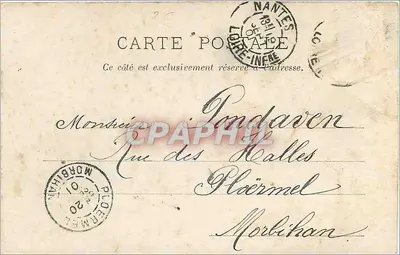 NANTES
LOIRE-INFRE
CARTE POSTALE
Ce côté est exclusivement réservé à l'adresse.
Monsieur Pondaven
CPAPHIL
Rue des Halles
Ploërmel
Morbihan
PLOERMEL
20
MORBIHAN